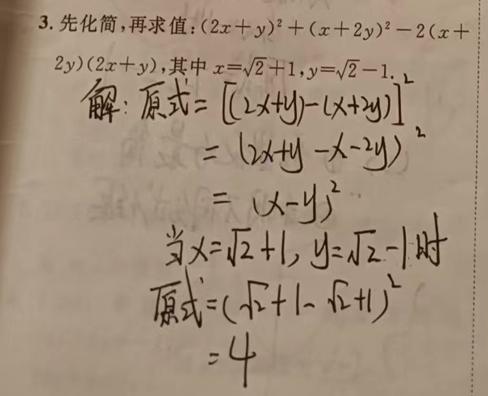 3. 先化简,再求值:(2x+y)²+(x+2y)²-2(x+
2y)(2x+y),其中 x=√2+1,y=√2-1.
解:原式=[(2x+y)-(x+2y)]²
=(2x+y-x-2y)²
=(x-y)²
当x=√2+1,y=√2-1时
原式=(√2+1-√2+1)²
=4